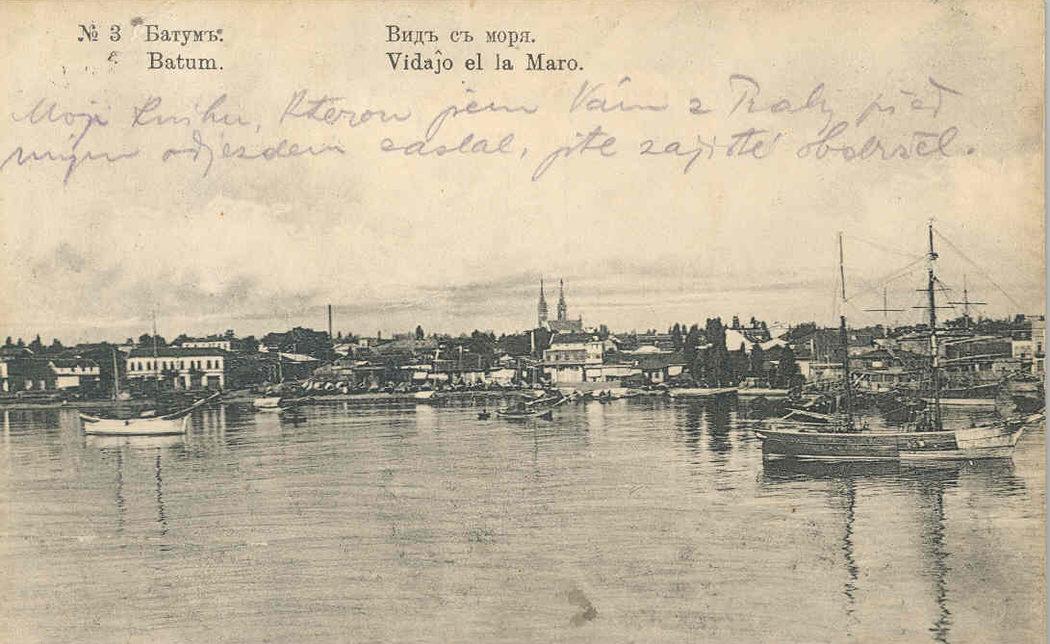 № 3 Батумъ. Видъ съ моря.
Batum. Vidaĵo el la Maro.
Moji knihu, kterou jsem Vám z Prahy před
mým odjezdem zaslal, jste zajisté obdržel.